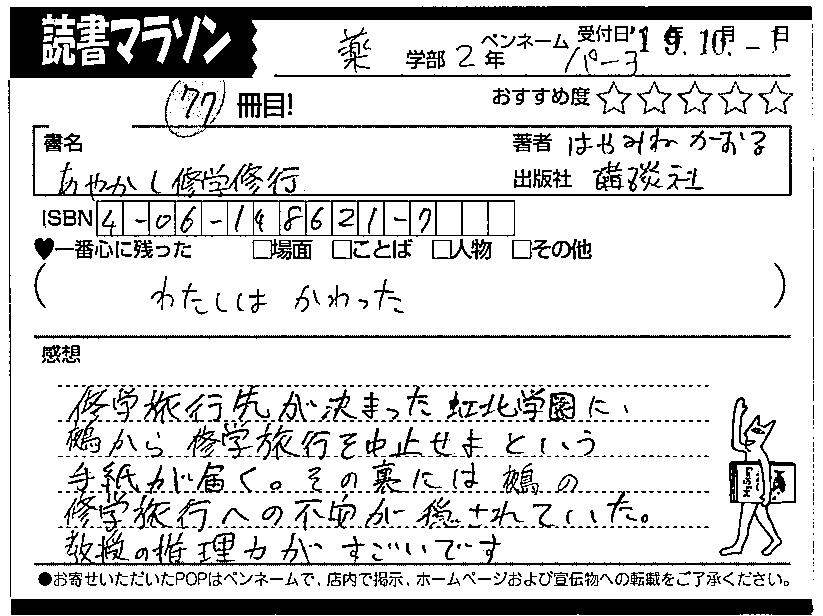 読書マラソン
薬 学部 2年 ペンネーム パーコ 受付日'19.10.-1日
77 冊目!
おすすめ度 ☆☆☆☆☆
書名 あやかし修学修行
著者 はやみね かおる
出版社 講談社
ISBN 4-06-148621-7
♥一番心に残った □場面 □ことば □人物 □その他
( わたしは かわった )
感想
修学旅行先が決まった虹北学園に、
鵺から 修学旅行を中止せよ という
手紙が届く。その裏には 鵺 の
修学旅行への不安が 隠されていた。
教授の推理力が すごいです
●お寄せいただいたPOPはペンネームで、店内で掲示、ホームページおよび宣伝物への転載をご了承ください。